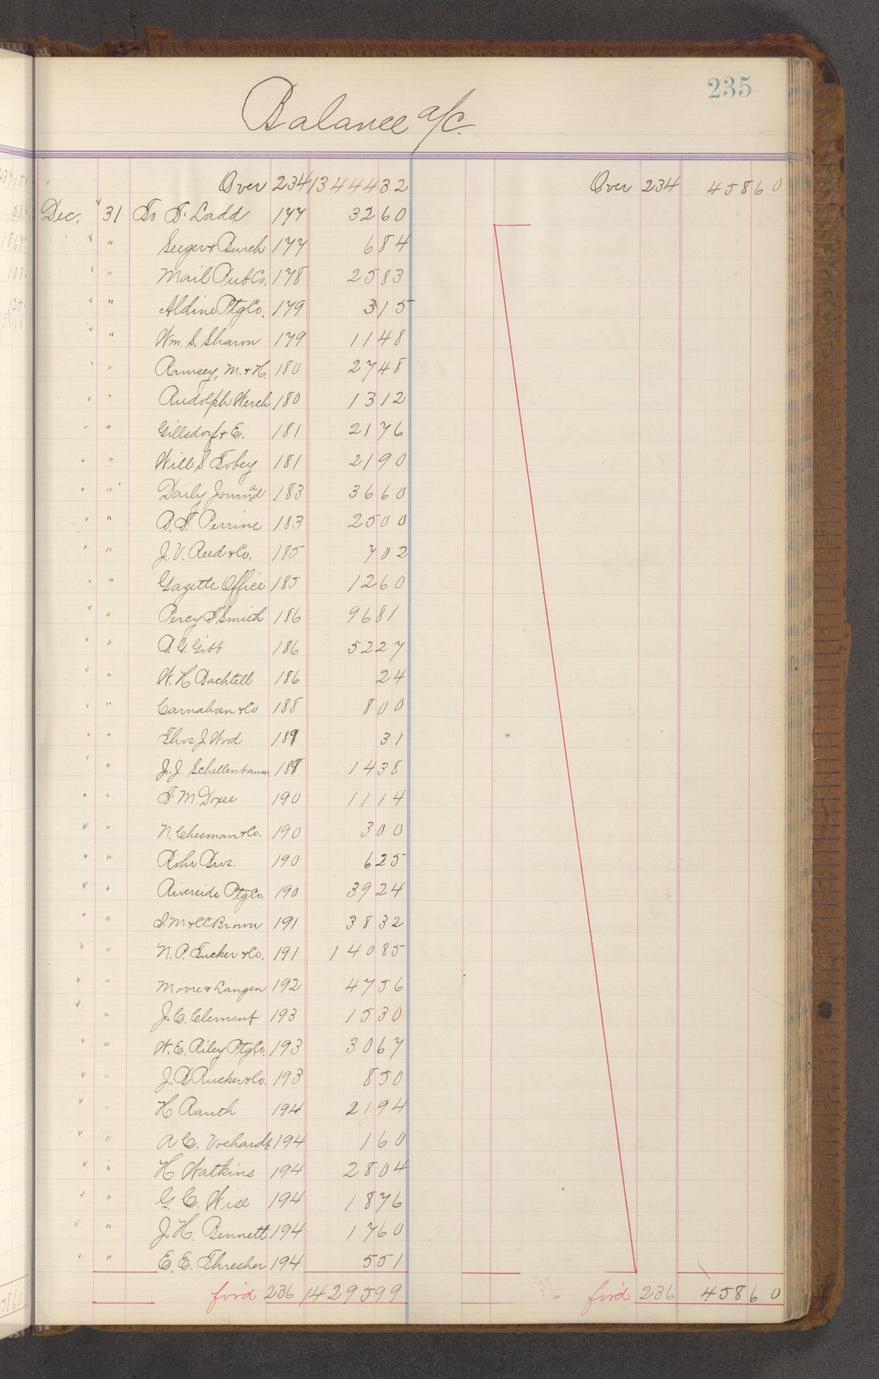 235
Balance a/c.
Over 234 1344432 Over 234 45860
Dec. 31 To S. Ladd 177 3260
" " Seeger & Burch 177 684
" " Mail Pub Co. 178 2583
" " Aldine Ptg Co. 179 315
" " Wm. S. Sharon 179 1148
" " Ramsey, M. & H. 180 2748
" " Rudolph Werch 180 1312
" " Gillsdorf & E. 181 2176
" " Will S Tobey 181 2190
" " Daily Journal 183 3660
" " Perrine 183 2500
" " J. V. Reed & Co. 185 702
" " Gazette Office 185 1260
" " Percy F Smith 186 9681
" " Gibb 186 5227
" " W. H. Bachtell 186 24
" " Carnahan & Co 188 800
" " Thos J. Wood 189 31
" " J. J. Schellenbaum 189 1438
" " M. Doxee 190 1114
" " N. Chuman & Co. 190 300
" " Rohr Bros. 190 625
" " Riverside Ptg Co. 190 3924
" " M & CC Brown 191 3832
" " N. P. Tucker & Co. 191 14085
" " Moore & Langen 192 4756
" " J. C. Clement 193 1530
" " W. E. Riley Ptg Co. 193 3067
" " J. R Rucker & Co. 193 850
" " H Rauth 194 2194
" " A C. 194 160
" " H Watkins 194 2804
" " G. C. Wise 194 1876
" " J. H. Bennett 194 1760
" " E. E. Thresher 194 551
for'd 236 1429599 for'd 236 45860